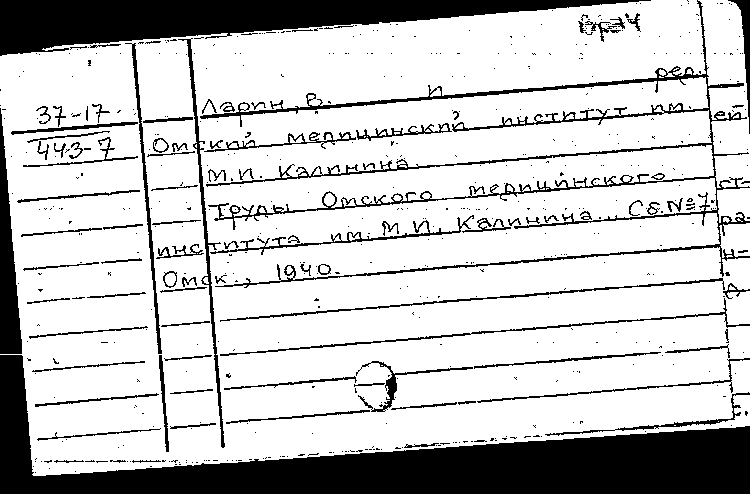 Врач
37-17. Ларин, В. и ред.
443-7 Омский медицинский институт им.
М.И. Калинина.
Труды Омского медицинского
института им. М.И. Калинина. Сб. №7.
Омск., 1940.
ей
ст-
ра-
н-